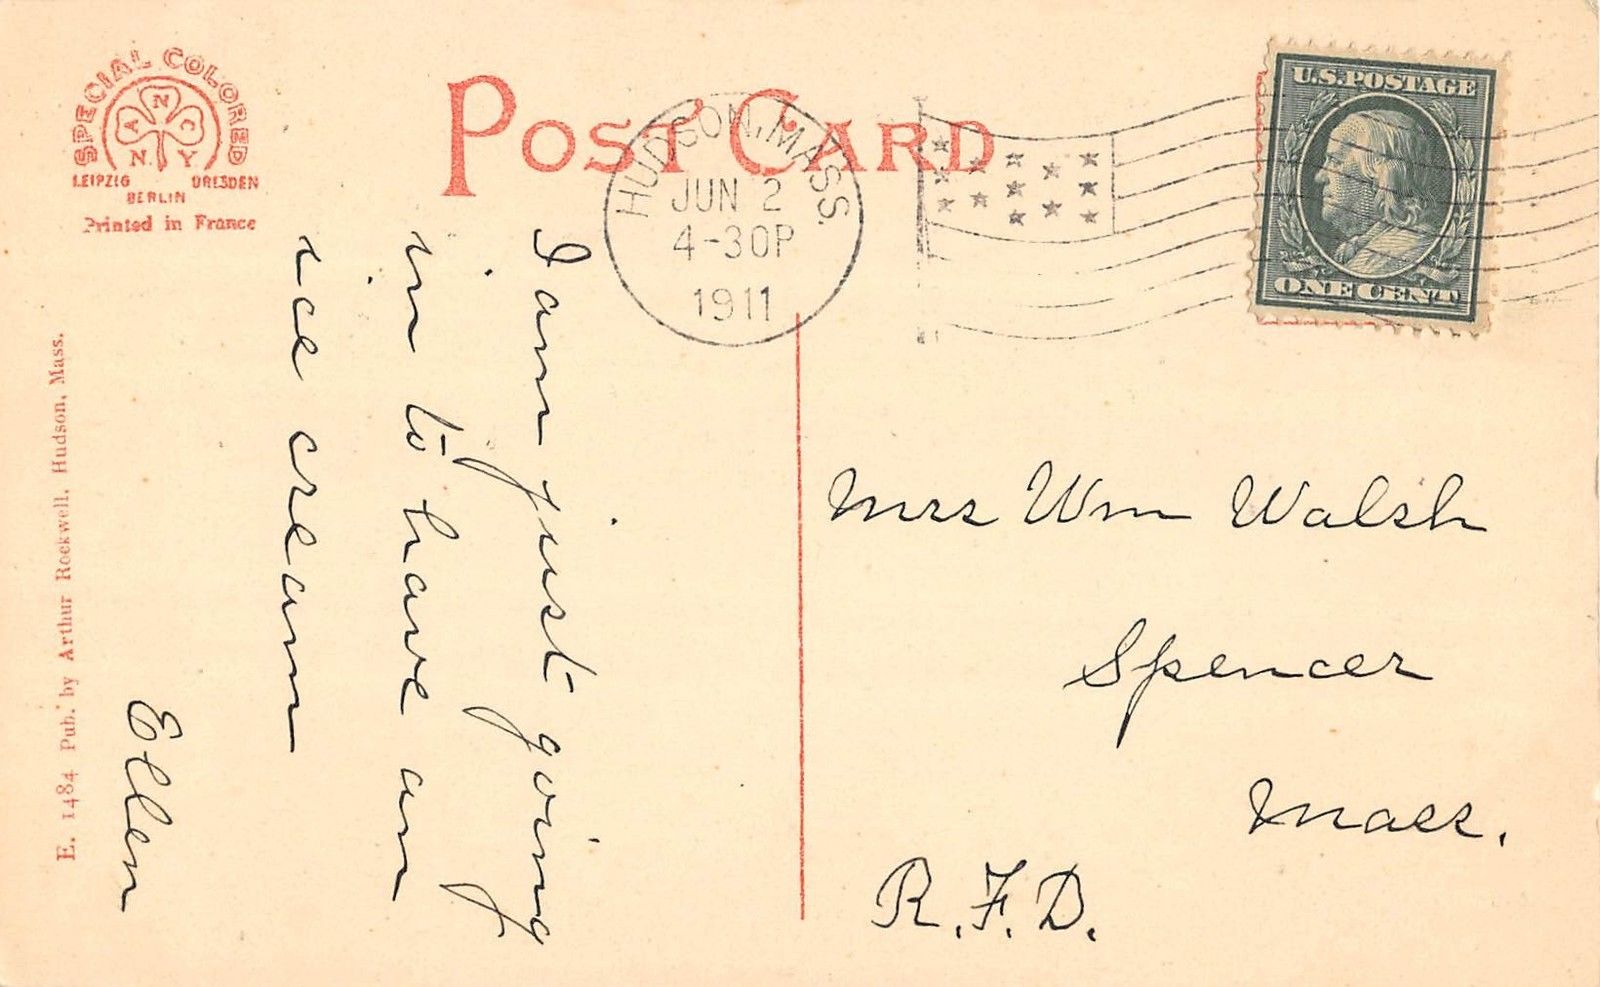 SPECIAL COLORED
A N C
N. Y
LEIPZIG DRESDEN
BERLIN
Printed in France
POST CARD
HUDSON, MASS.
JUN 2
4-30P
1911
U.S. POSTAGE
ONE CENT
I am just going
in to have an
ice cream
Ellen
Mrs Wm Walsh
Spencer
Mass.
R.F.D.
E. 1484 Pub. by Arthur Rockwell, Hudson, Mass.